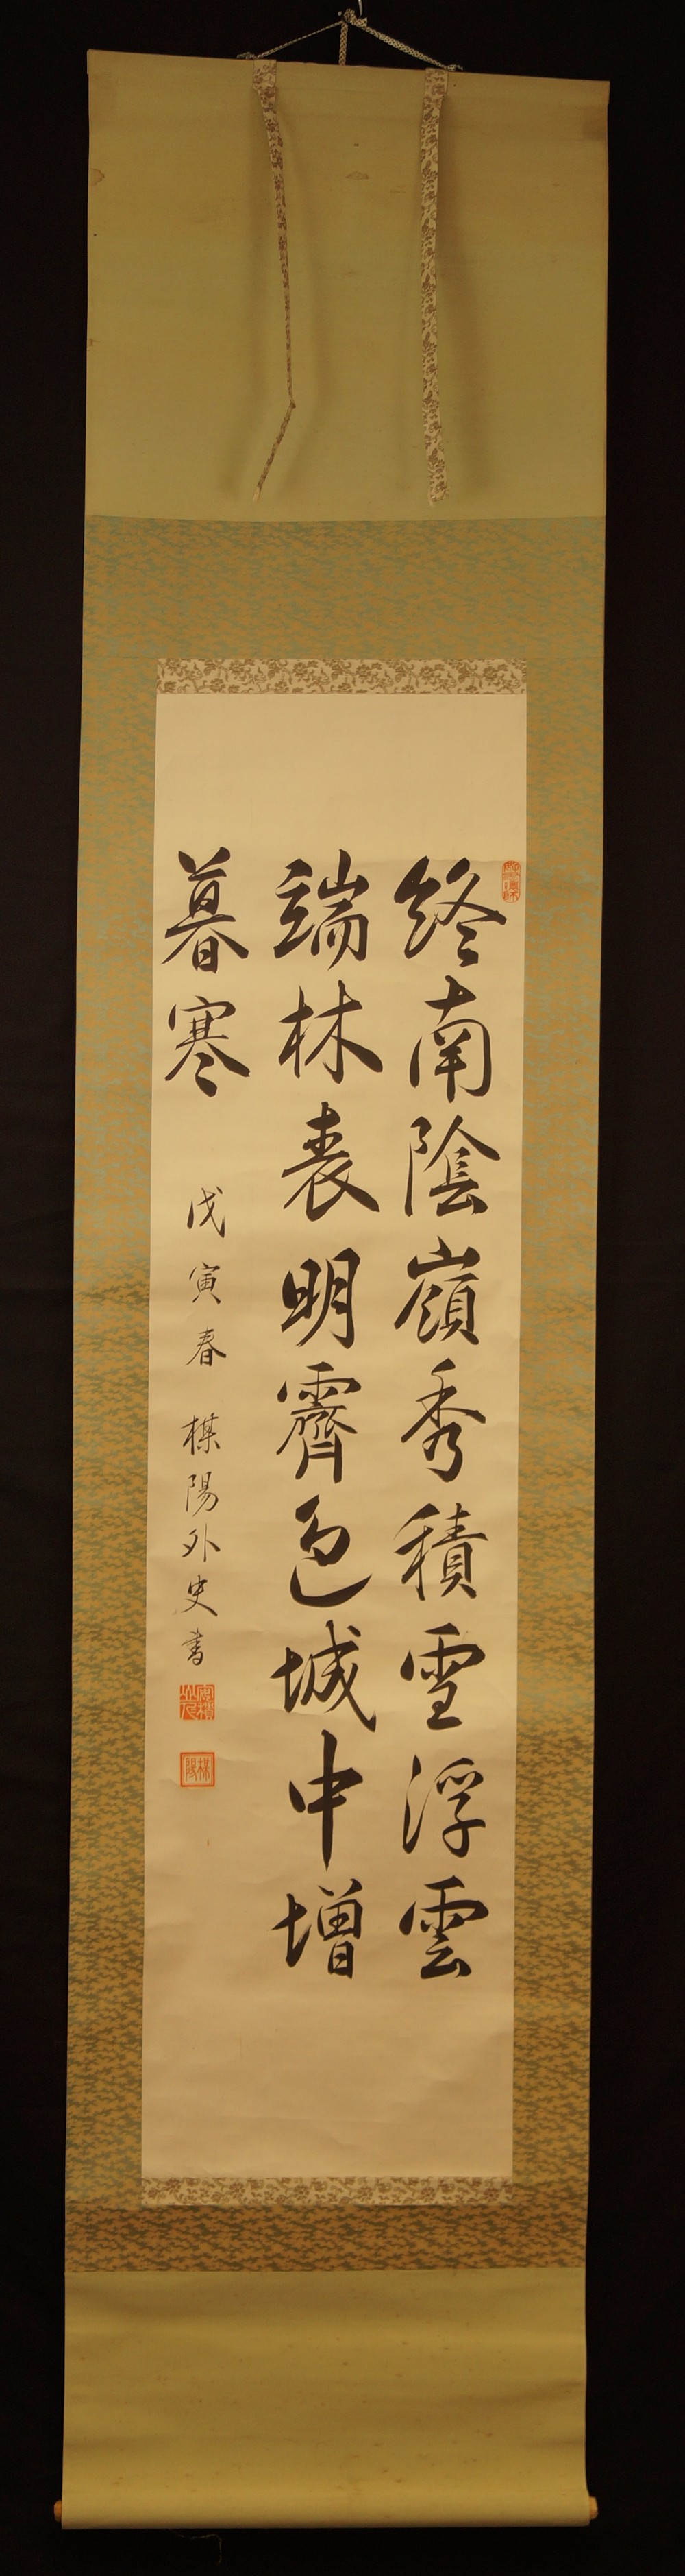 終南陰嶺秀積雪浮雲
端林表明霽色城中増
暮寒
戊寅春 楳陽外史書
楳陽